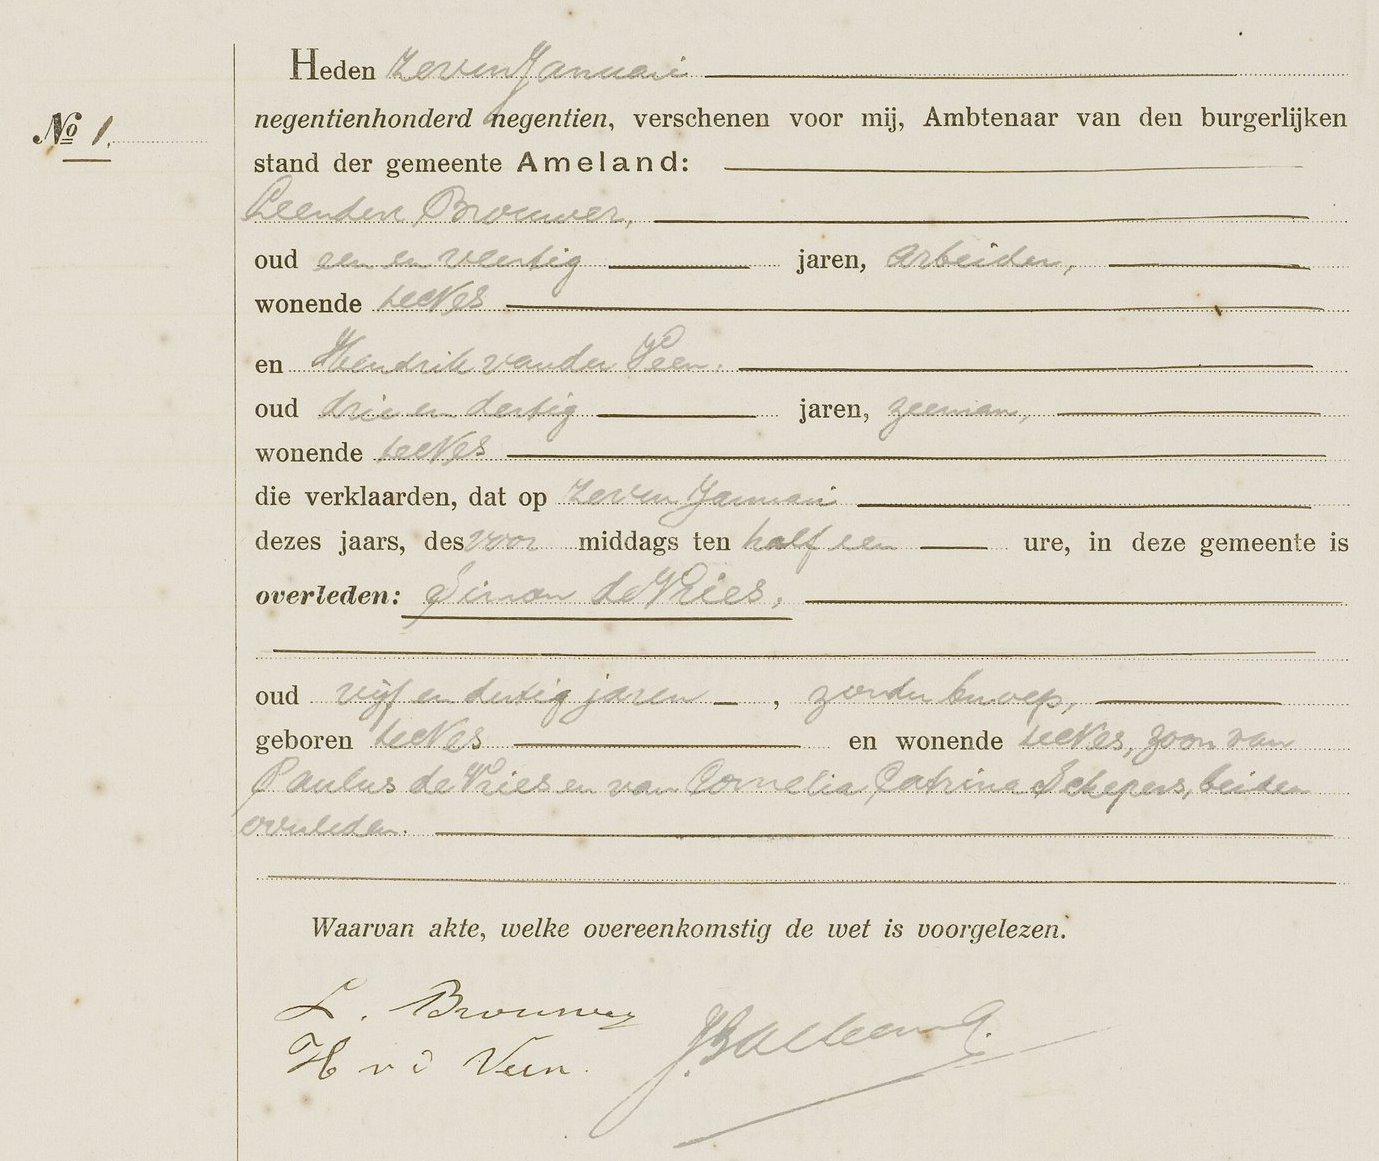 Heden zeven Januari
No 1.
negentienhonderd negentien, verschenen voor mij, Ambtenaar van den burgerlijken
stand der gemeente Ameland:
Leendert Brouwer,
oud een en veertig jaren, arbeider,
wonende te Nes
en Hendrik van der Veen,
oud drie en dertig jaren, zeeman,
wonende te Nes
die verklaarden, dat op zeven Januari
dezes jaars, des voor middags ten half een ure, in deze gemeente is
overleden: Simon de Vries,
oud vijf en dertig jaren, zonder beroep,
geboren te Nes en wonende te Nes, zoon van
Paulus de Vries en van Cornelia Catrina Schepers, beiden
overleden.
Waarvan akte, welke overeenkomstig de wet is voorgelezen.
L. Brouwer
H v d Veen.